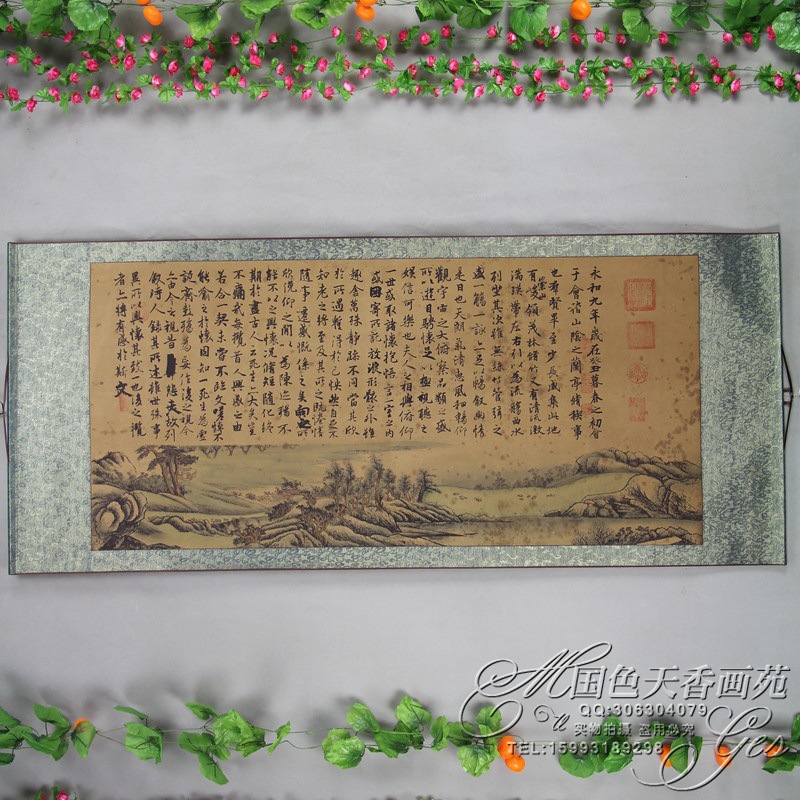 永和九年歲在癸丑暮春之初會
于會稽山陰之蘭亭脩稧事
也羣賢畢至少長咸集此地
有崇山峻領茂林脩竹又有清流激
湍暎帶左右引以為流觴曲水
列坐其次雖無絲竹管弦之
盛一觴一詠亦足以暢叙幽情
是日也天朗氣清惠風和暢仰
觀宇宙之大俯察品類之盛
所以遊目騁懷足以極視聽之
娛信可樂也夫人之相與俯仰
一世或取諸懷抱悟言一室之內
或因寄所託放浪形骸之外雖
趣舍萬殊靜躁不同當其欣
於所遇蹔得於己怏然自足不
知老之將至及其所之既惓情
隨事遷感慨係之矣向之所
欣俛仰之間以為陳迹猶不
能不以之興懷況脩短隨化終
期於盡古人云死生亦大矣豈
不痛哉每攬昔人興感之由
若合一契未嘗不臨文嗟悼不
能喻之於懷固知一死生為虛
誕齊彭殤為妄作後之視今
亦由今之視昔悲夫故列
叙時人錄其所述雖世殊事
異所以興懷其致一也後之攬
者亦將有感於斯文
国色天香画苑
QQ:306304079
实物拍摄 盗用必究
TEL:15993189298